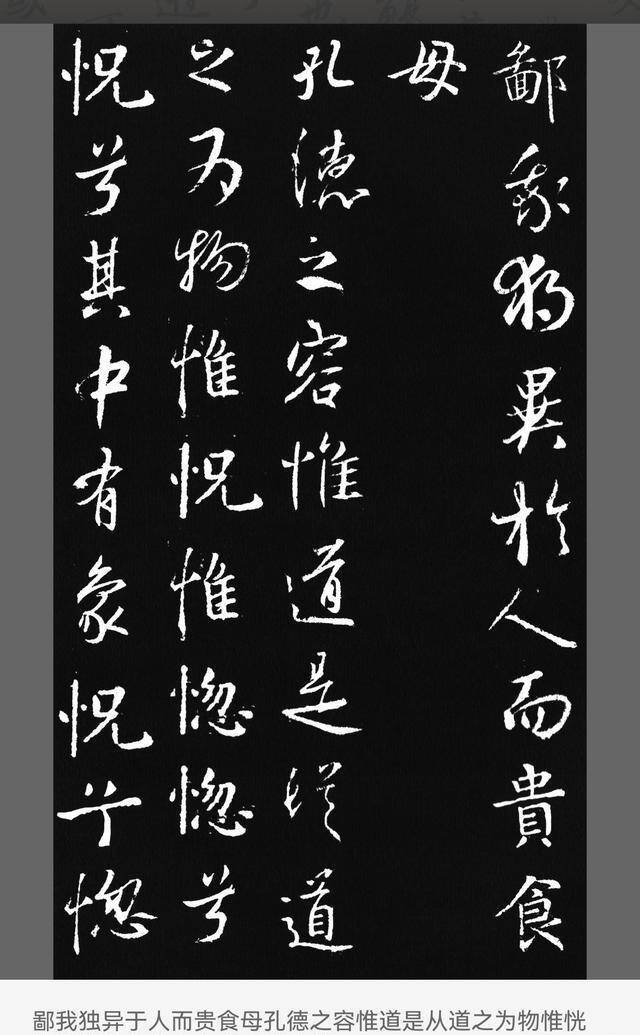 鄙我独異於人而貴食
母
孔德之容惟道是従道
之为物惟怳惟惚惚兮
怳兮其中有象怳兮惚
鄙我独异于人而贵食母孔德之容惟道是从道之为物惟恍